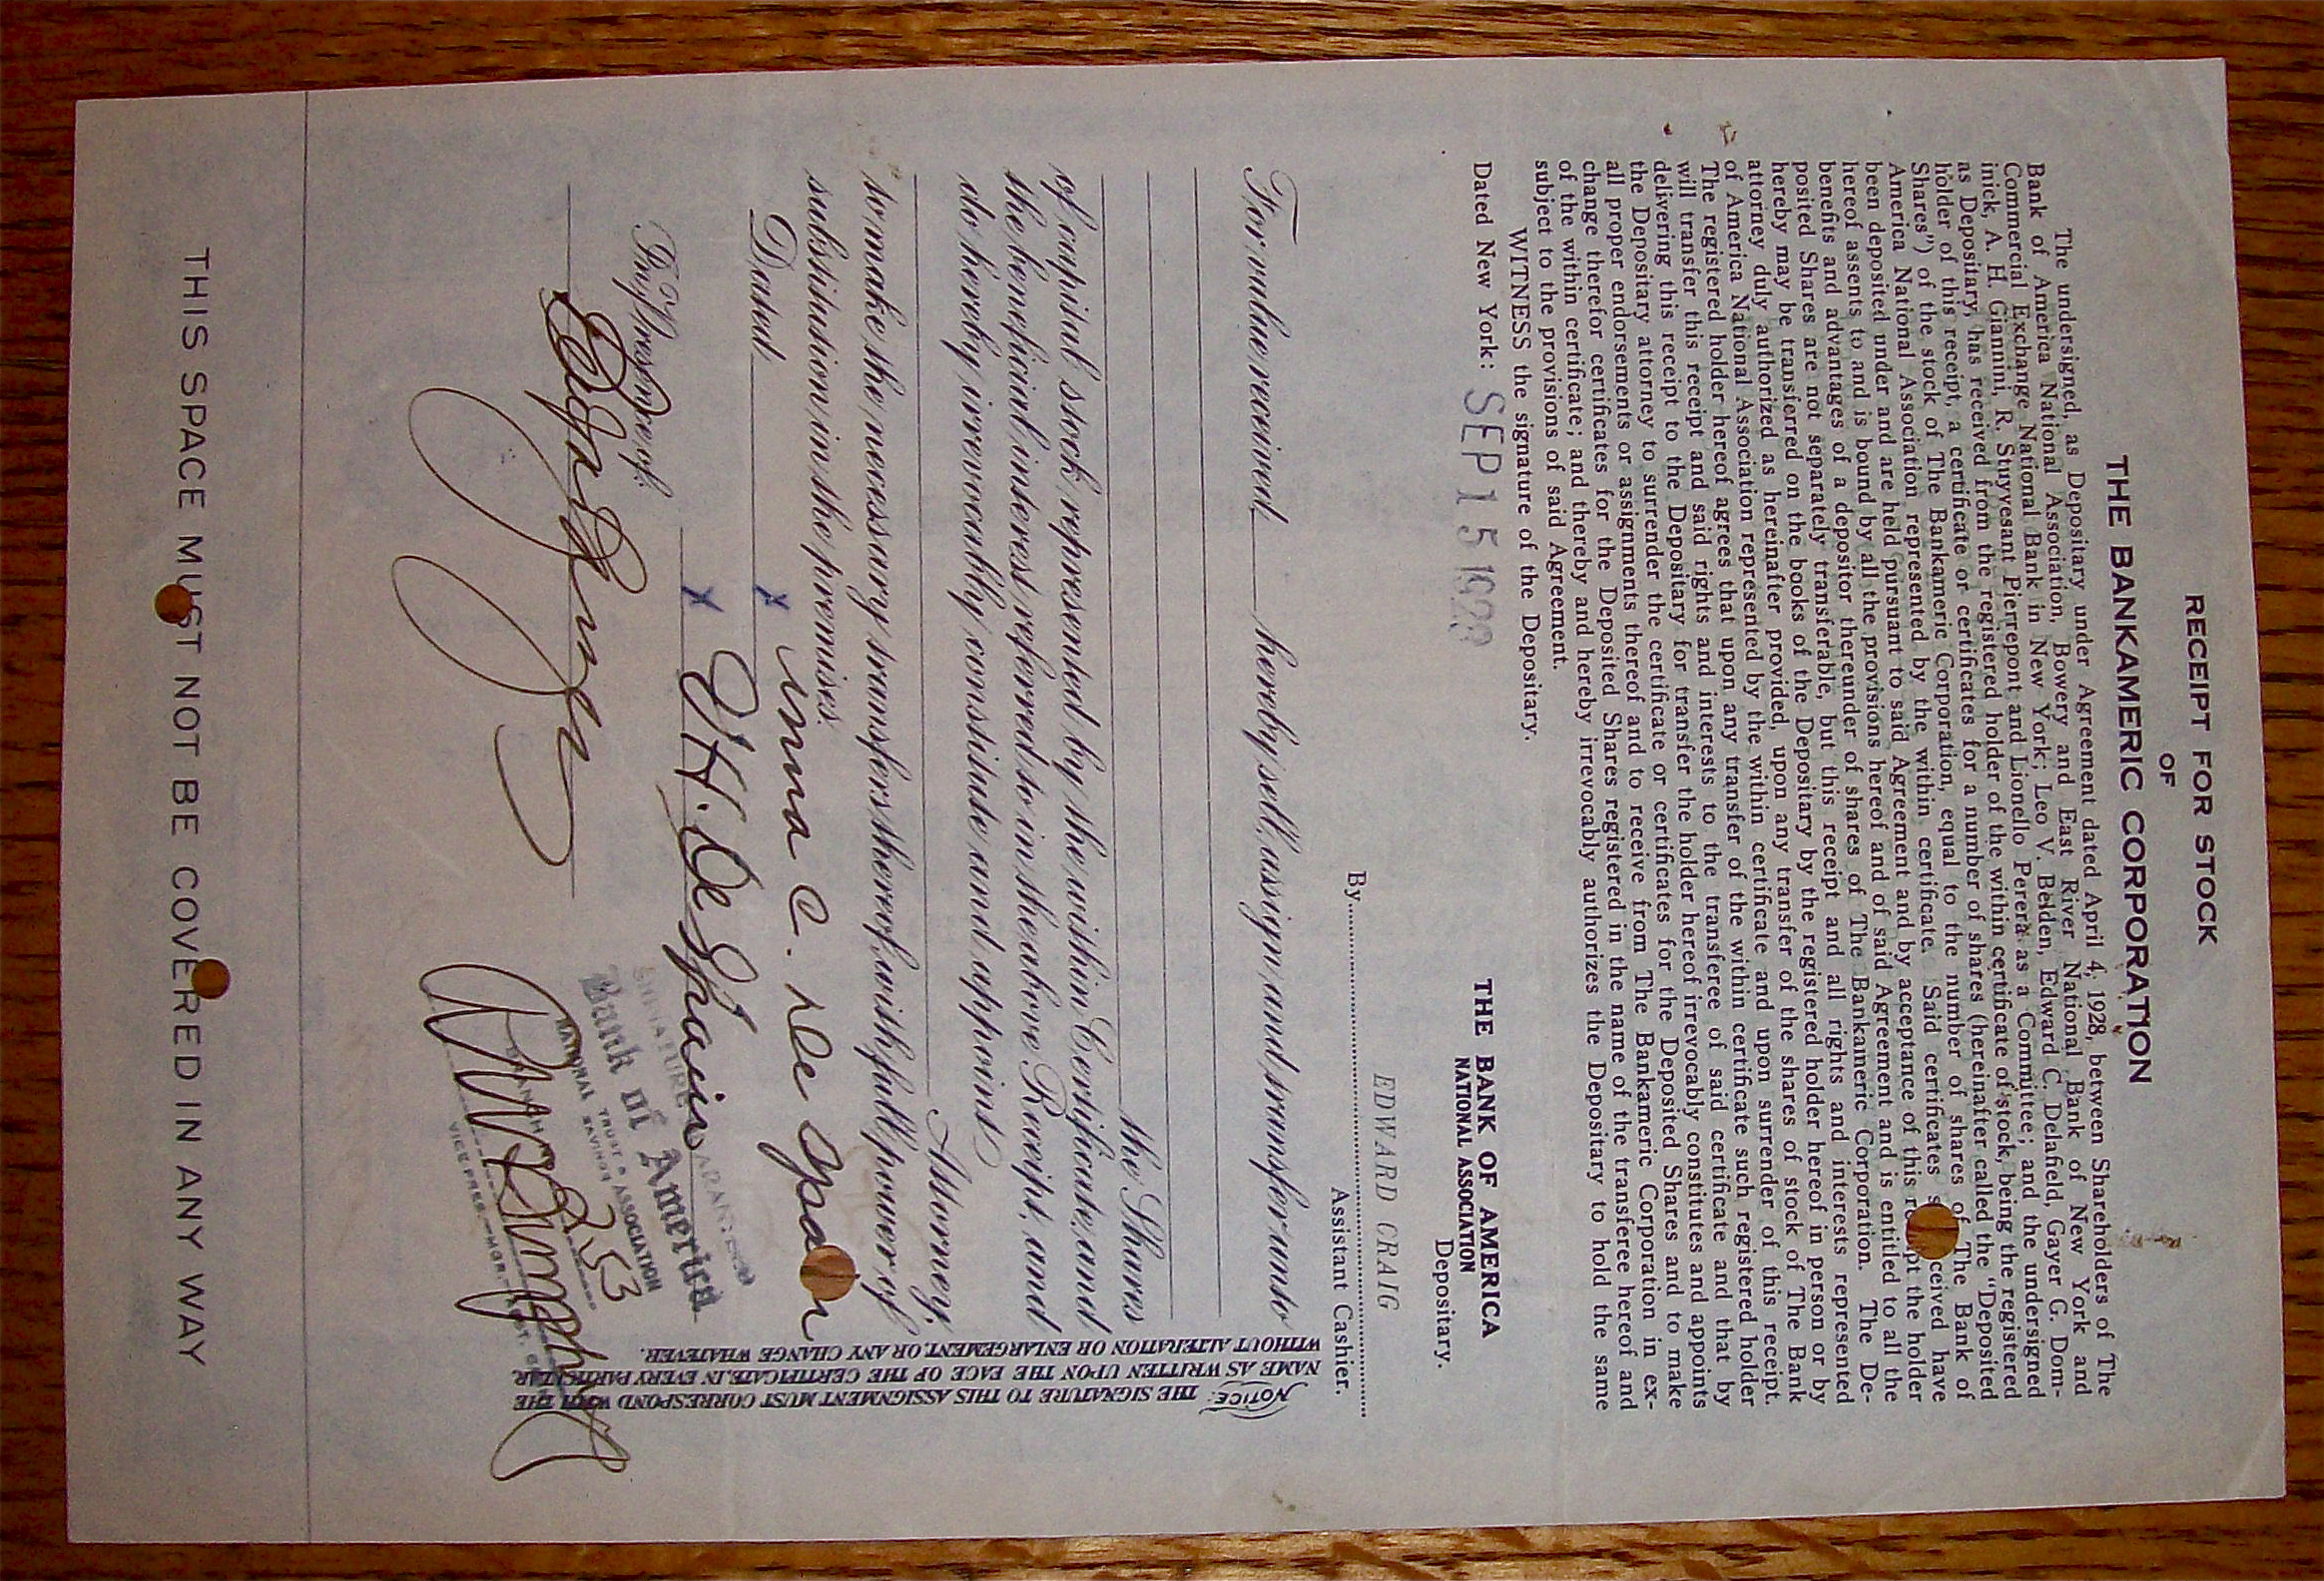 RECEIPT FOR STOCK
OF
THE BANKAMERIC CORPORATION
The undersigned, as Depositary under Agreement dated April 4, 1928, between Shareholders of The
Bank of America National Association, Bowery and East River National Bank of New York and
Commercial Exchange National Bank in New York; Leo V. Belden, Edward C. Delafield, Gayer G. Dom-
inick, A. H. Giannini, R. Stuyvesant Pierrepont and Lionello Perera as a Committee; and the undersigned
as Depositary, has received from the registered holder of the within certificate of stock, being the registered
holder of this receipt, a certificate or certificates for a number of shares (hereinafter called the "Deposited
Shares") of the stock of The Bankameric Corporation, equal to the number of shares of The Bank of
America National Association represented by the within certificate. Said certificates so received have
been deposited under and are held pursuant to said Agreement and by acceptance of this receipt the holder
hereof assents to and is bound by all the provisions hereof and of said Agreement and is entitled to all the
benefits and advantages of a depositor thereunder of shares of The Bankameric Corporation. The De-
posited Shares are not separately transferable, but this receipt and all rights and interests represented
hereby may be transferred on the books of the Depositary by the registered holder hereof in person or by
attorney duly authorized as hereinafter provided, upon any transfer of the shares of stock of The Bank
of America National Association represented by the within certificate and upon surrender of this receipt.
The registered holder hereof agrees that upon any transfer of the within certificate such registered holder
will transfer this receipt and said rights and interests to the transferee of said certificate and that by
delivering this receipt to the Depositary for transfer the holder hereof irrevocably constitutes and appoints
the Depositary attorney to surrender the certificate or certificates for the Deposited Shares and to make
all proper endorsements or assignments thereof and to receive from The Bankameric Corporation in ex-
change therefor certificates for the Deposited Shares registered in the name of the transferee hereof and
of the within certificate; and thereby and hereby irrevocably authorizes the Depositary to hold the same
subject to the provisions of said Agreement.
WITNESS the signature of the Depositary.
Dated New York: SEP 15 1928
THE BANK OF AMERICA
NATIONAL ASSOCIATION
Depositary.
EDWARD CRAIG
By
Assistant Cashier.
For value received hereby sell, assign and transfer unto
the Shares
of capital stock represented by the within Certificate, and
the beneficial interest referred to in the above Receipt, and
do hereby irrevocably constitute and appoint
Attorney,
to make the necessary transfers thereof, with full power of
substitution in the premises.
Dated
x Anna C. De Spain
In Presence of:
x J H. De Spain
SIGNATURE GUARANTEED
Bank of America
NATIONAL TRUST & SAVINGS ASSOCIATION
BRANCH 253
VICE PRES.—MGR.
NOTICE: THE SIGNATURE TO THIS ASSIGNMENT MUST CORRESPOND WITH THE
NAME AS WRITTEN UPON THE FACE OF THE CERTIFICATE, IN EVERY PARTICULAR,
WITHOUT ALTERATION OR ENLARGEMENT, OR ANY CHANGE WHATEVER.
THIS SPACE MUST NOT BE COVERED IN ANY WAY